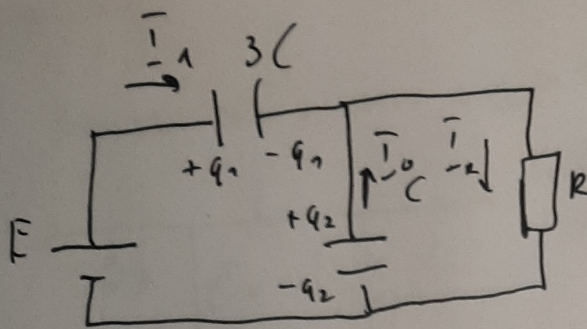 I₁ 3C
+q₁ -q₁
I₀ I₂
C
+q₂
E R
-q₂